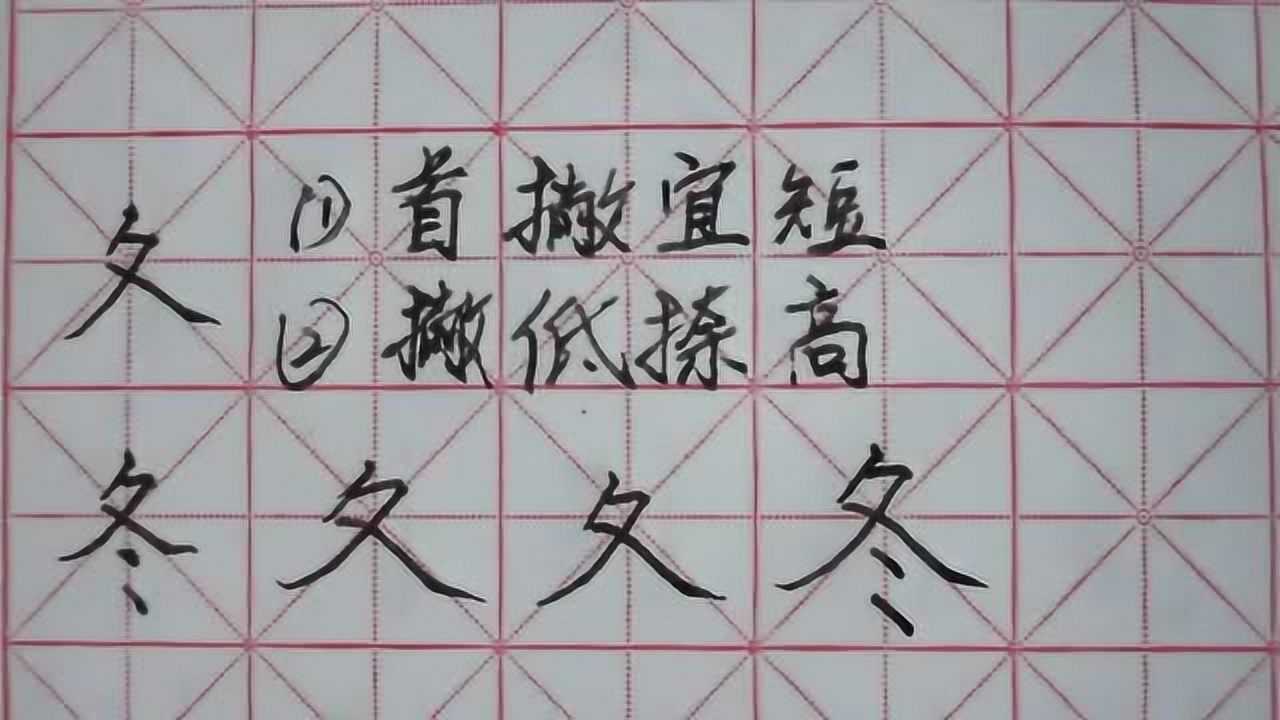 夂 ①首撇宜短
②撇低捺高
冬夂夂冬